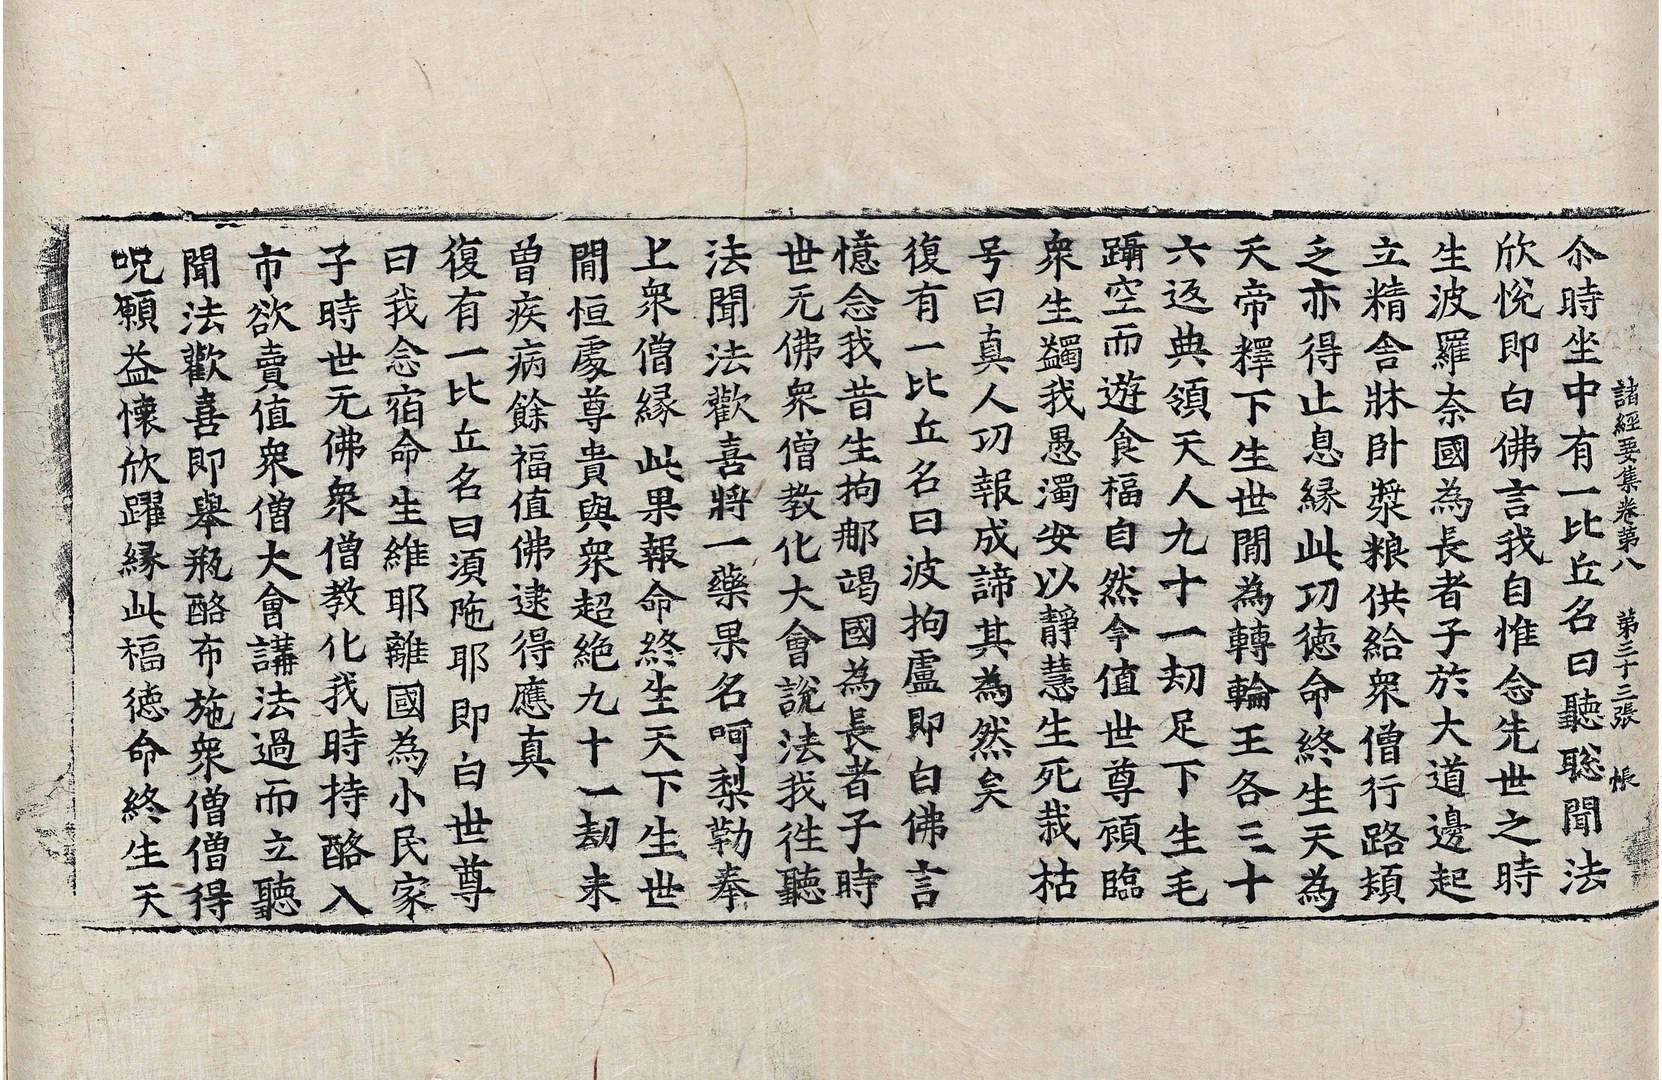 諸經要集卷第八　第三十三張　帳
尒時坐中有一比丘名曰聽聡聞法
欣悅即白佛言我自惟念先世之時
生波羅奈國為長者子於大道邊起
立精舍牀卧漿粮供給衆僧行路頓
乏亦得止息縁此功徳命終生天為
天帝釋下生世間為轉輪王各三十
六返典領天人九十一劫足下生毛
躡空而遊食福自然今值世尊頋臨
衆生蠲我愚濁安以靜慧生死栽枯
号曰真人功報成諦其為然矣
復有一比丘名曰波拘盧即白佛言
憶念我昔生拘郍竭國為長者子時
世无佛衆僧教化大會說法我徃聽
法聞法歡喜將一藥果名呵梨勒奉
上衆僧縁此果報命終生天下生世
間恒處尊貴與衆超絶九十一劫未
曾疾病餘福值佛逮得應真
復有一比丘名曰湏陁耶即白世尊
曰我念宿命生維耶離國為小民家
子時世无佛衆僧教化我時持酪入
市欲賣值衆僧大會講法過而立聽
聞法歡喜即舉瓶酪布施衆僧僧得
呪願益懐欣躍縁此福徳命終生天